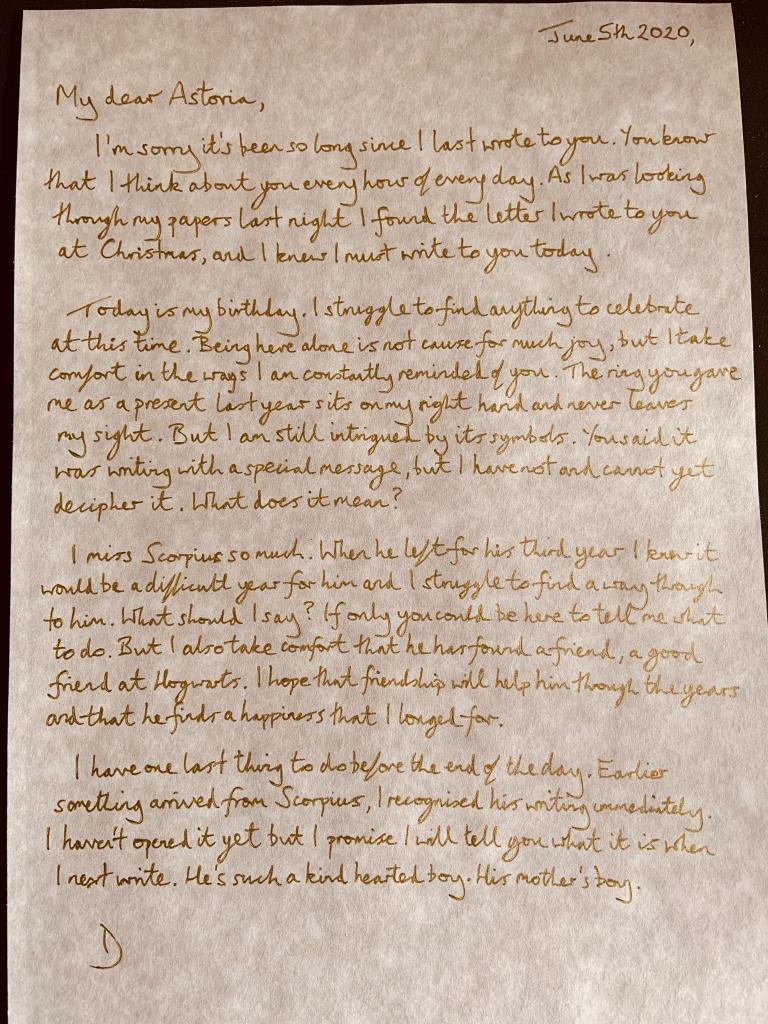 June 5th 2020,
My dear Astoria,
I'm sorry it's been so long since I last wrote to you. You know
that I think about you every hour of every day. As I was looking
through my papers last night I found the letter I wrote to you
at Christmas, and I knew I must write to you today.
Today is my birthday. I struggle to find anything to celebrate
at this time. Being here alone is not cause for much joy, but I take
comfort in the ways I am constantly reminded of you. The ring you gave
me as a present last year sits on my right hand and never leaves
my sight. But I am still intrigued by its symbols. You said it
was writing with a special message, but I have not and cannot yet
decipher it. What does it mean?
I miss Scorpius so much. When he left for his third year I knew it
would be a difficult year for him and I struggle to find a way through
to him. What should I say? If only you could be here to tell me what
to do. But I also take comfort that he has found a friend, a good
friend at Hogwarts. I hope that friendship will help him through the years
and that he finds a happiness that I longed for.
I have one last thing to do before the end of the day. Earlier
something arrived from Scorpius, I recognised his writing immediately.
I haven't opened it yet but I promise I will tell you what it is when
I next write. He's such a kind hearted boy. His mother's boy.
D